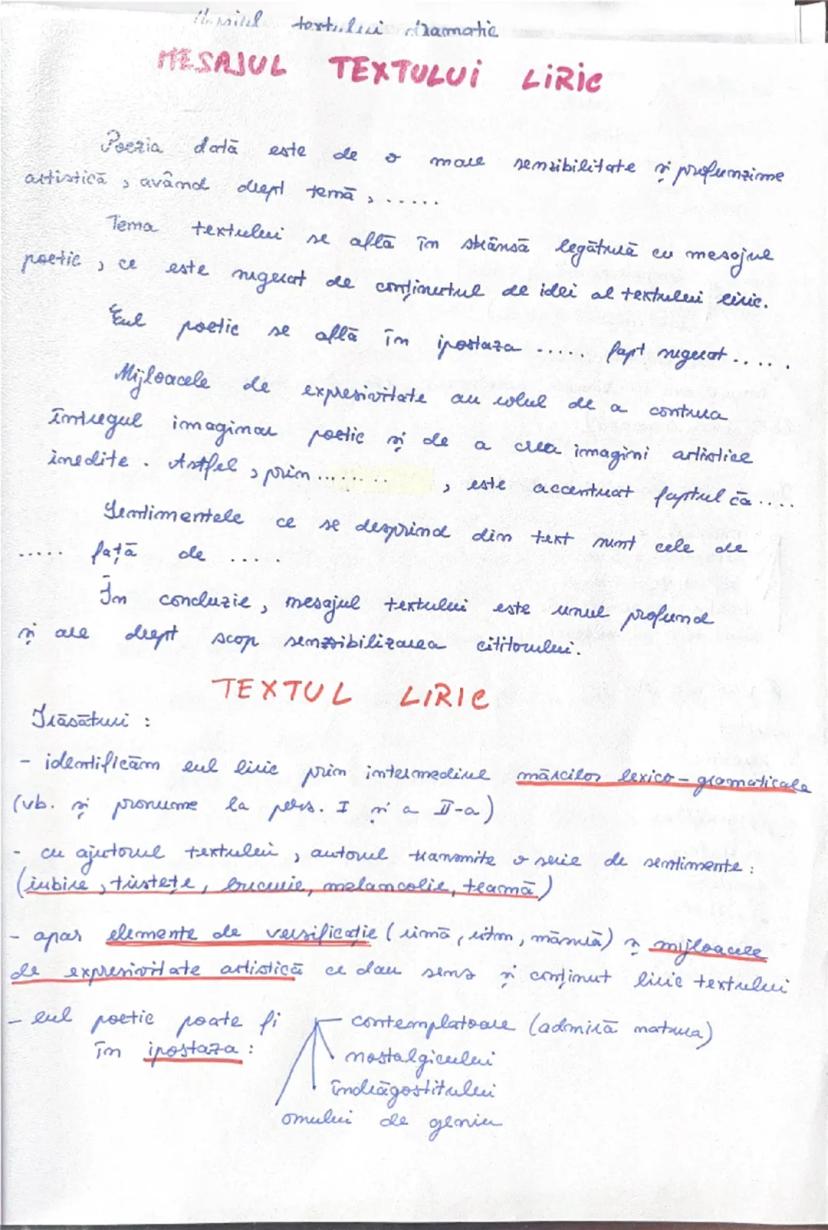 textului dramatic
MESAJUL TEXTULUI LIRIC
Poezia dată este de o mare sensibilitate și profunzime
artistică, având drept temă, .....
Tema textului se află în strânsă legătură cu mesajul
poetic, ce este sugerat de conținutul de idei al textului liric.
Eul poetic se află în ipostaza ..... fapt sugerat .....
Mijloacele de expresivitate au rolul de a contura
întregul imaginar poetic și de a crea imagini artistice
inedite. Astfel, prin ........ , este accentuat faptul că ....
Sentimentele ce se desprind din text sunt cele de
..... față de .....
În concluzie, mesajul textului este unul profund
și are drept scop sensibilizarea cititorului.
TEXTUL LIRIC
Trăsături :
- identificăm eul liric prin intermediul mărcilor lexico-gramaticale
(vb. și pronume la pers. I și a II-a)
- cu ajutorul textului, autorul transmite o serie de sentimente:
(iubire, tristețe, bucurie, melancolie, teamă)
- apar elemente de versificație (rimă, ritm, măsură) și mijloacele
de expresivitate artistică ce dau sens și conținut liric textului
- eul poetic poate fi contemplatoare (admiră natura)
în ipostaza : nostalgicului
îndrăgostitului
omului de geniu